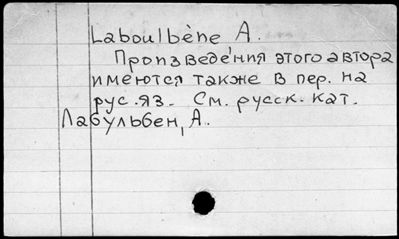 Laboulbène A.
Произведения этого автора
имеются также в пер. на
рус. яз. См. русск. кат.
Лабульбен, А.